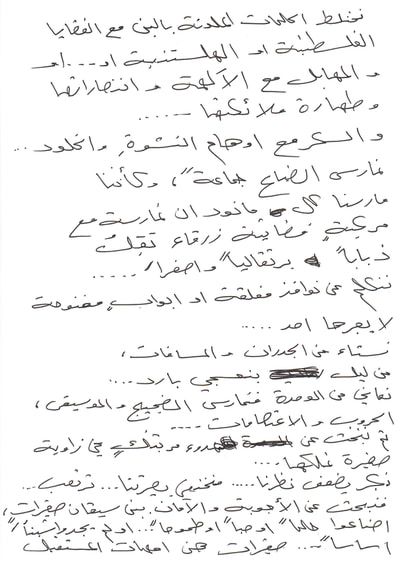 تختلط الكلمات الملونة بالبني مع القضايا
الفلسطينية او الهلستنية او ....او
و المهابل مع الآلهة و انتصاراتها
و طهارة ملائكتها ......
و السكر مع اوهام النشوة و الخلود ...
نمارس الضياع جماعةً، وكأننا
مارسنا كل ما نود ان نمارسة مع
مركبةٍ فضائية زرقاء تقلّ
ذباباً برتقالياً و اصفراً .....
نتكلم عن نوافذ مغلقة او ابواب مفتوحة
لا يعرفها احد .....
نستاء من الجدران و المسافات،
من ليلٍ بنفسجي بارد ....
نعاني من الوحدة فنمارس الضجيج و الموسيقى،
الحروب و الاعتصامات ....
ثم نبحث عن هدوء في زاوية
صغيرة نملكها ....
نكبر يضعف نظرنا ..... فنختبي ... ترتعب ...
فنبحث عن الأجوبة و الأمان بين سيقان صغيرات،
اضاعوا حلماً او حباً او طموحاً ... او لم يجدوا شيئاً
اساساً ... صغيرات هن امهات المستقبل